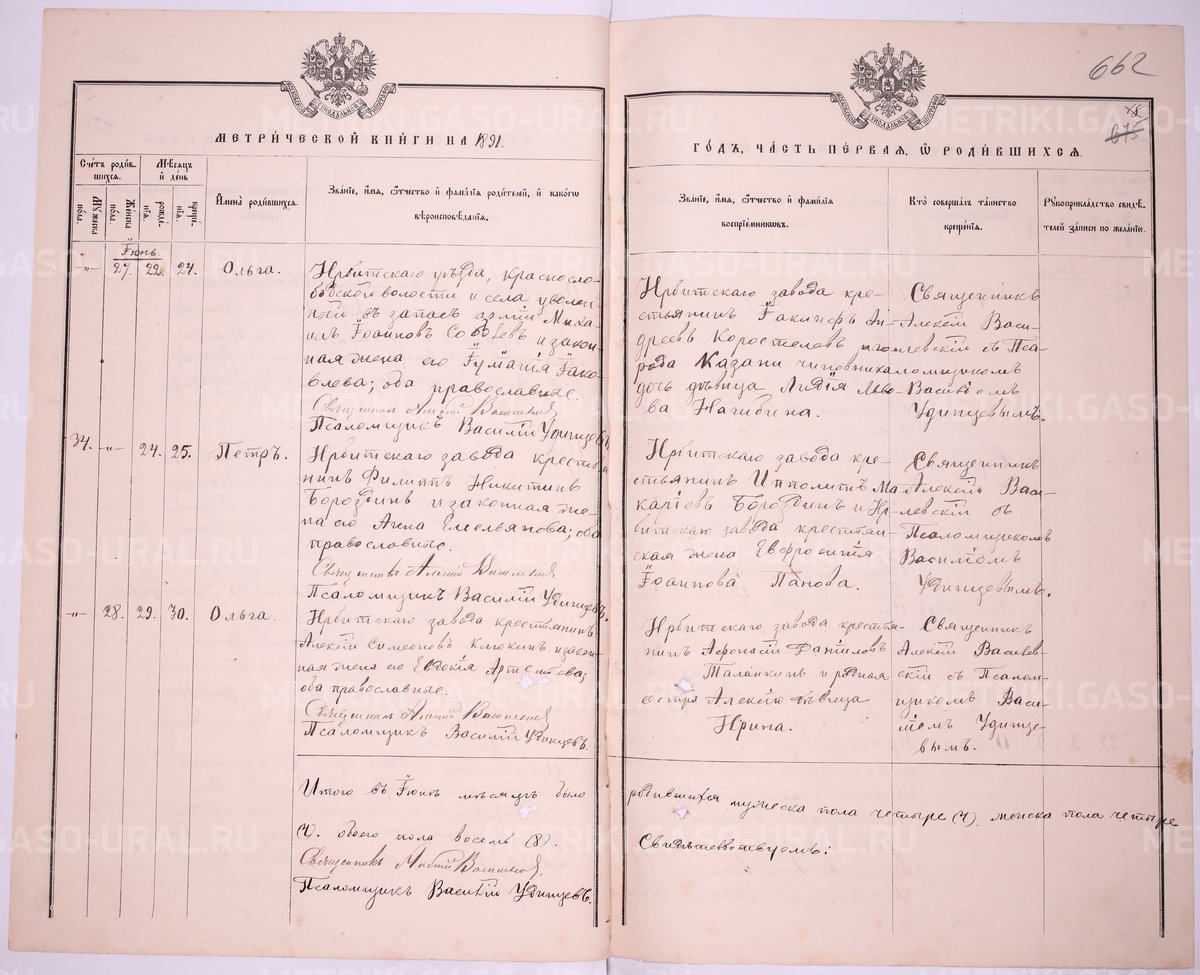 662
МЕТРИ́ЧЕСКОЙ КНИ́ГИ НА 1891.
ГО́ДЪ, ЧА́СТЬ ПЕ́РВАЯ, Ѡ РОДИ́ВШИХСЯ.
78
675
Сче́тъ роди́в-
шихся.
Му́жеска
по́ла.
Же́нска
по́ла.
Мѣ́сяцъ
и де́нь
рожде́-
нія.
креще́-
нія.
И́мена роди́вшихся.
Зва́ніе, и́мя, ѻ́тчество и фами́лія роди́телей, и како́гѡ
вѣроисповѣ́данія.
Зва́ніе, и́мя, ѻ́тчество и фами́лія
воспрїе́мниковъ.
Кто̀ соверша́лъ та́инство
креще́нія.
Рꙋкоприкла́дство свидѣ́-
телей за́писи по жела́нію.
Іюнь
-"- 27. 22. 24. Ольга.
Ирбитскаго уѣзда, Краснослo-
бодской волости и села уволен
ной въ запасъ арміи Миха-
илъ Іоанновъ Соболевъ и закон-
ная жена его Іуліанія Іако-
влева; оба православные.
Священникъ Алексій Василевскій
Псаломщикъ Василій Удинцевъ.
Ирбитскаго завода кре-
стьянинъ Іакинфъ Ан-
дреевъ Коростелевъ и го-
рода Казани чиновника
дочь дѣвица Лидія Льво-
ва Нагибина.
Священникъ
Алексій Васи-
левскій съ Пса-
ломщикомъ
Василіемъ
Удинцевымъ.
34. -"- 24. 25. Петръ.
Ирбитскаго завода крестья
нинъ Филиппъ Никитинъ
Бороздинъ и законная же-
на его Анна Емельянова; оба
православные.
Священникъ Алексій Василевскій
Псаломщикъ Василій Удинцевъ.
Ирбитскаго завода кре-
стьянинъ Ипполитъ Ма-
каріевъ Бороздинъ и Ир-
битскаго завода крестьян-
ская жена Евфросинія
Іоаннова Панова.
Священникъ
Алексій Васи-
левскій съ
Псаломщикомъ
Василіемъ
Удинцевымъ.
-"- 28. 29. 30. Ольга.
Ирбитскаго завода крестьянинъ
Алексій Симеоновъ Клюкинъ и закон-
ная жена его Евдокія Артемьева;
оба православные.
Священникъ Алексій Василевскій
Псаломщикъ Василій Удинцевъ.
Ирбитскаго завода крестья-
нинъ Афонасій Даниловъ
Таланкинъ и родная
сестра Алексія дѣвица
Ирина.
Священникъ
Алексій Василев-
скій съ Псалом-
щикомъ Васи-
ліемъ Удинце-
вымъ.
Итого въ Іюнѣ мѣсяцѣ было
родившихся мужеска пола четыре (4). женска пола четыре
(4). обоего пола восемь (8).
Свидѣтельствуемъ:
Священникъ Алексій Василевскій
Псаломщикъ Василій Удинцевъ.
METRIKI.GASO-URAL.RU